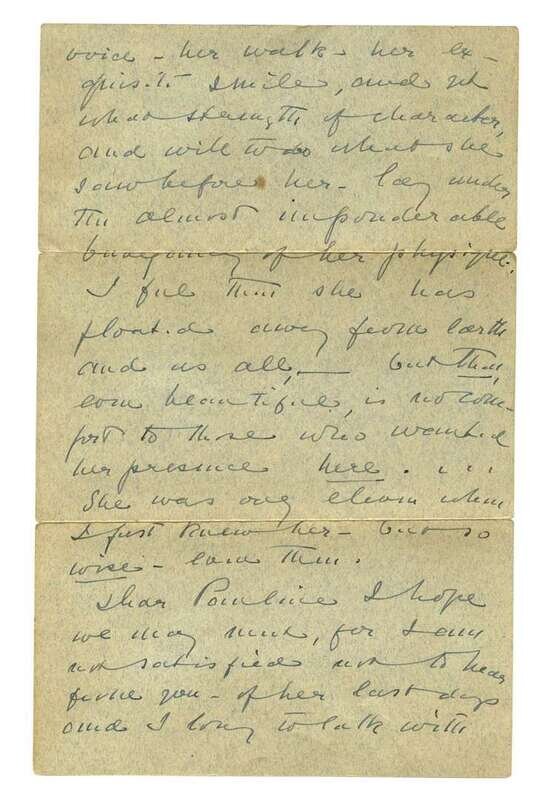 voice - her walk - her ex-
quisite smile, and yet
what strength of character,
and will to do what she
saw before her - lay under
the almost imponderable
buoyancy of her physique.
I feel that she has
floated away from earth
and us all, — but that,
even beautiful, is no com-
fort to those who wanted
her presence here . . . .
She was only eleven when
I first knew her - but so
wise - even then.
Dear Pauline I hope
we may meet, for I am
not satisfied not to hear
from you - of her last days
and I long to talk with